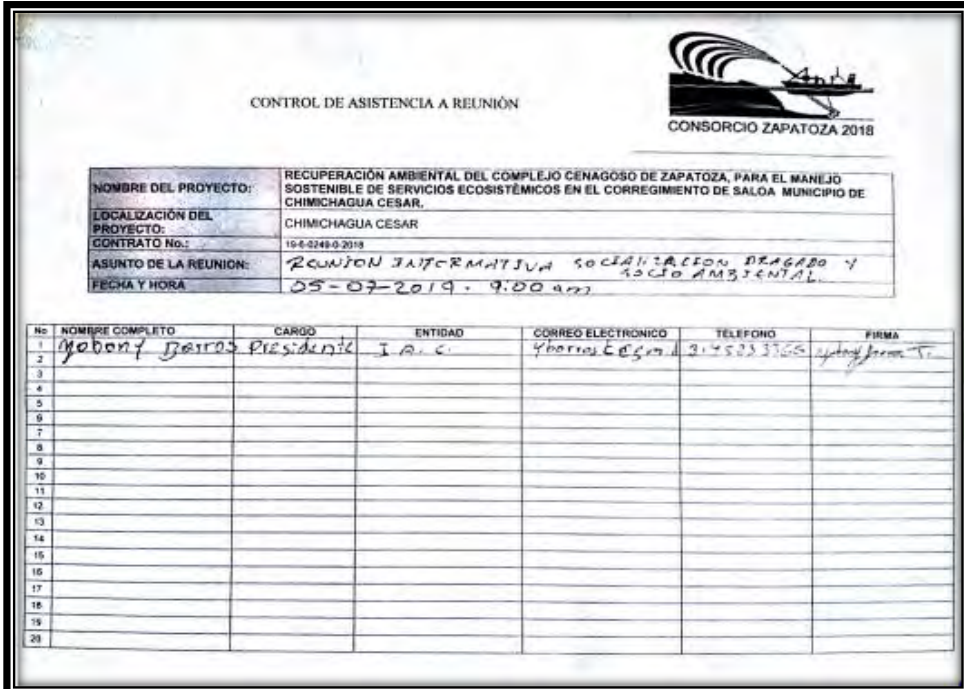 CONTROL DE ASISTENCIA A REUNIÓN
CONSORCIO ZAPATOZA 2018
NOMBRE DEL PROYECTO: RECUPERACIÓN AMBIENTAL DEL COMPLEJO CENAGOSO DE ZAPATOZA, PARA EL MANEJO
SOSTENIBLE DE SERVICIOS ECOSISTÉMICOS EN EL CORREGIMIENTO DE SALOA MUNICIPIO DE
CHIMICHAGUA CESAR.
LOCALIZACIÓN DEL
PROYECTO: CHIMICHAGUA CESAR
CONTRATO No.: 19-6-0249-0-2018
ASUNTO DE LA REUNION: REUNION INFORMATIVA SOCIALIZACION DRAGADO Y
SOCIO AMBIENTAL.
FECHA Y HORA 05-07-2019. 9:00 am
No NOMBRE COMPLETO CARGO ENTIDAD CORREO ELECTRONICO TELEFONO FIRMA
1 Barros Presidente
2
3
4
5
6
7
8
9
10
11
12
13
14
15
16
17
18
19
20